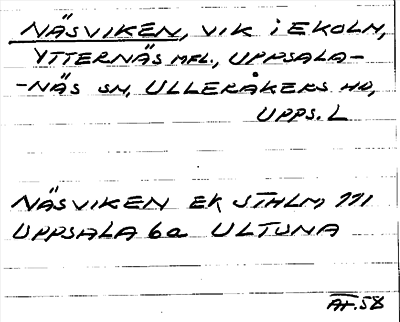 NÄSVIKEN, VIK i EKOLN,
YTTERNÄS MFL., UPPSALA-
-NÄS SN, ULLERÅKERS HD,
UPPS. L
NÄSVIKEN EK STHLM 111
UPPSALA 6a ULTUNA
AF.58